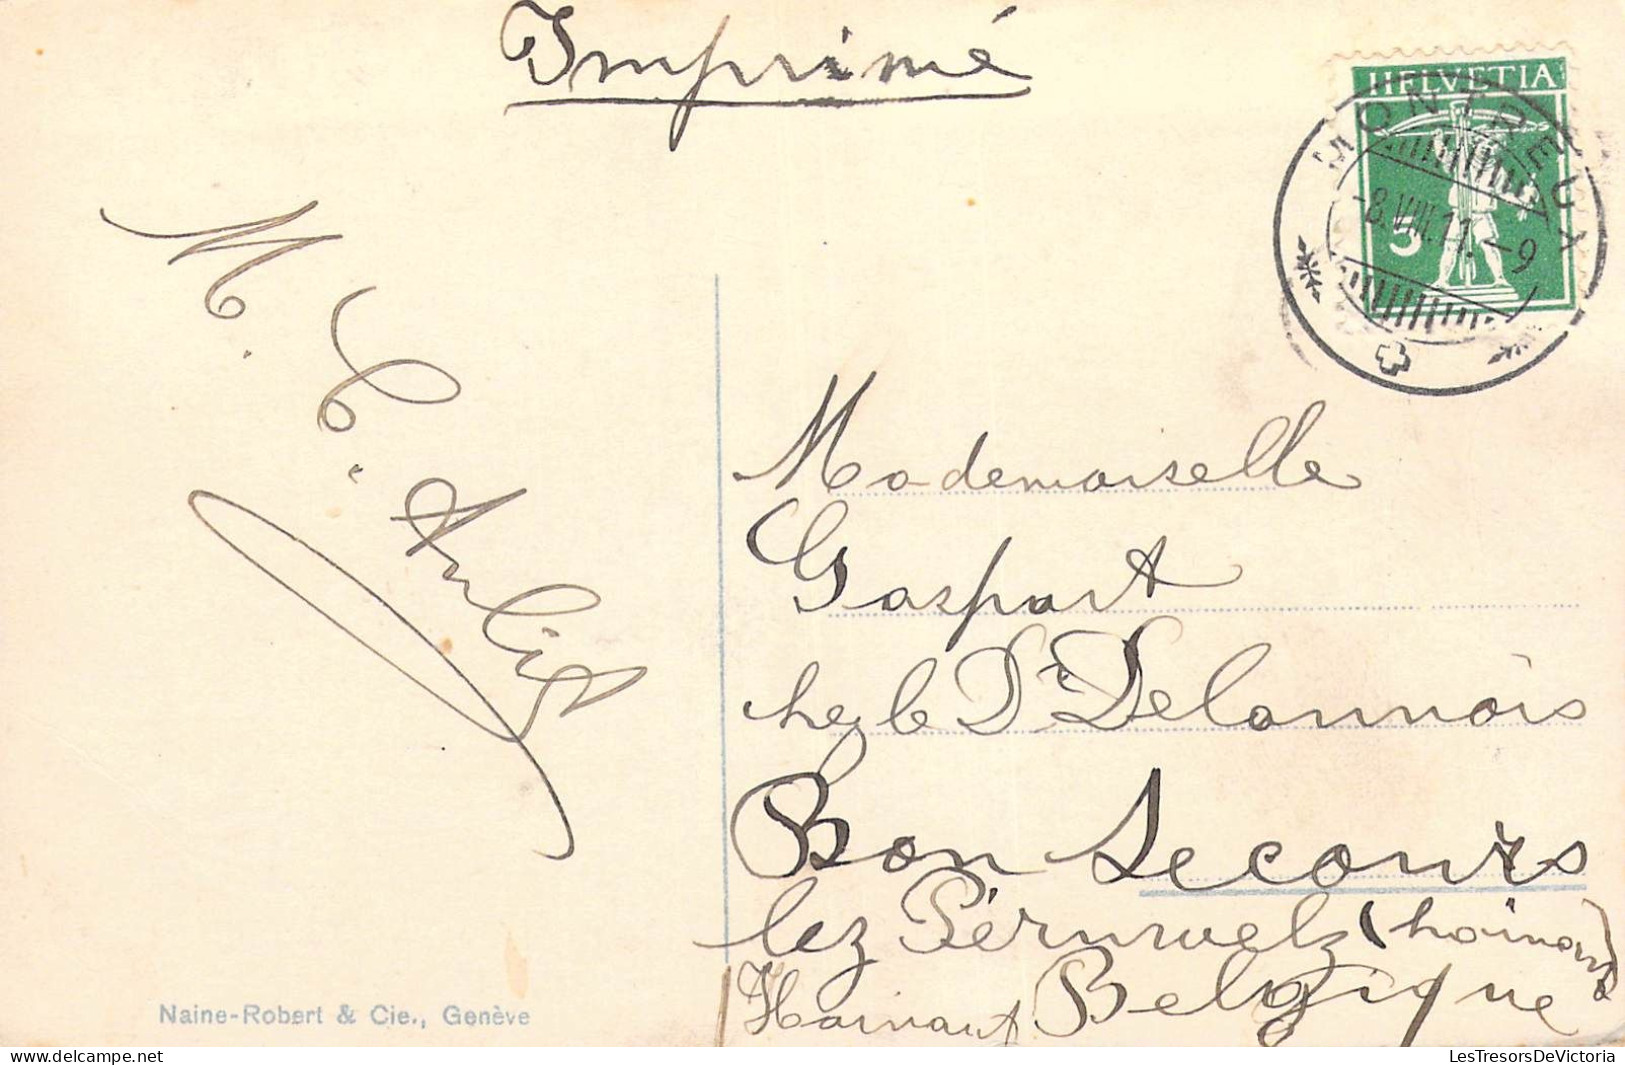 Imprimé
HELVETIA
MONTREUX
-8.VIII.11.-9
5
M. C. Aubert
Mademoiselle
Gaspart
chez le Dr Delannois
Bon Secours
lez Péruwelz (hainaut)
Hainaut Belgique
Naine-Robert & Cie., Genève
LesTresorsDeVictoria